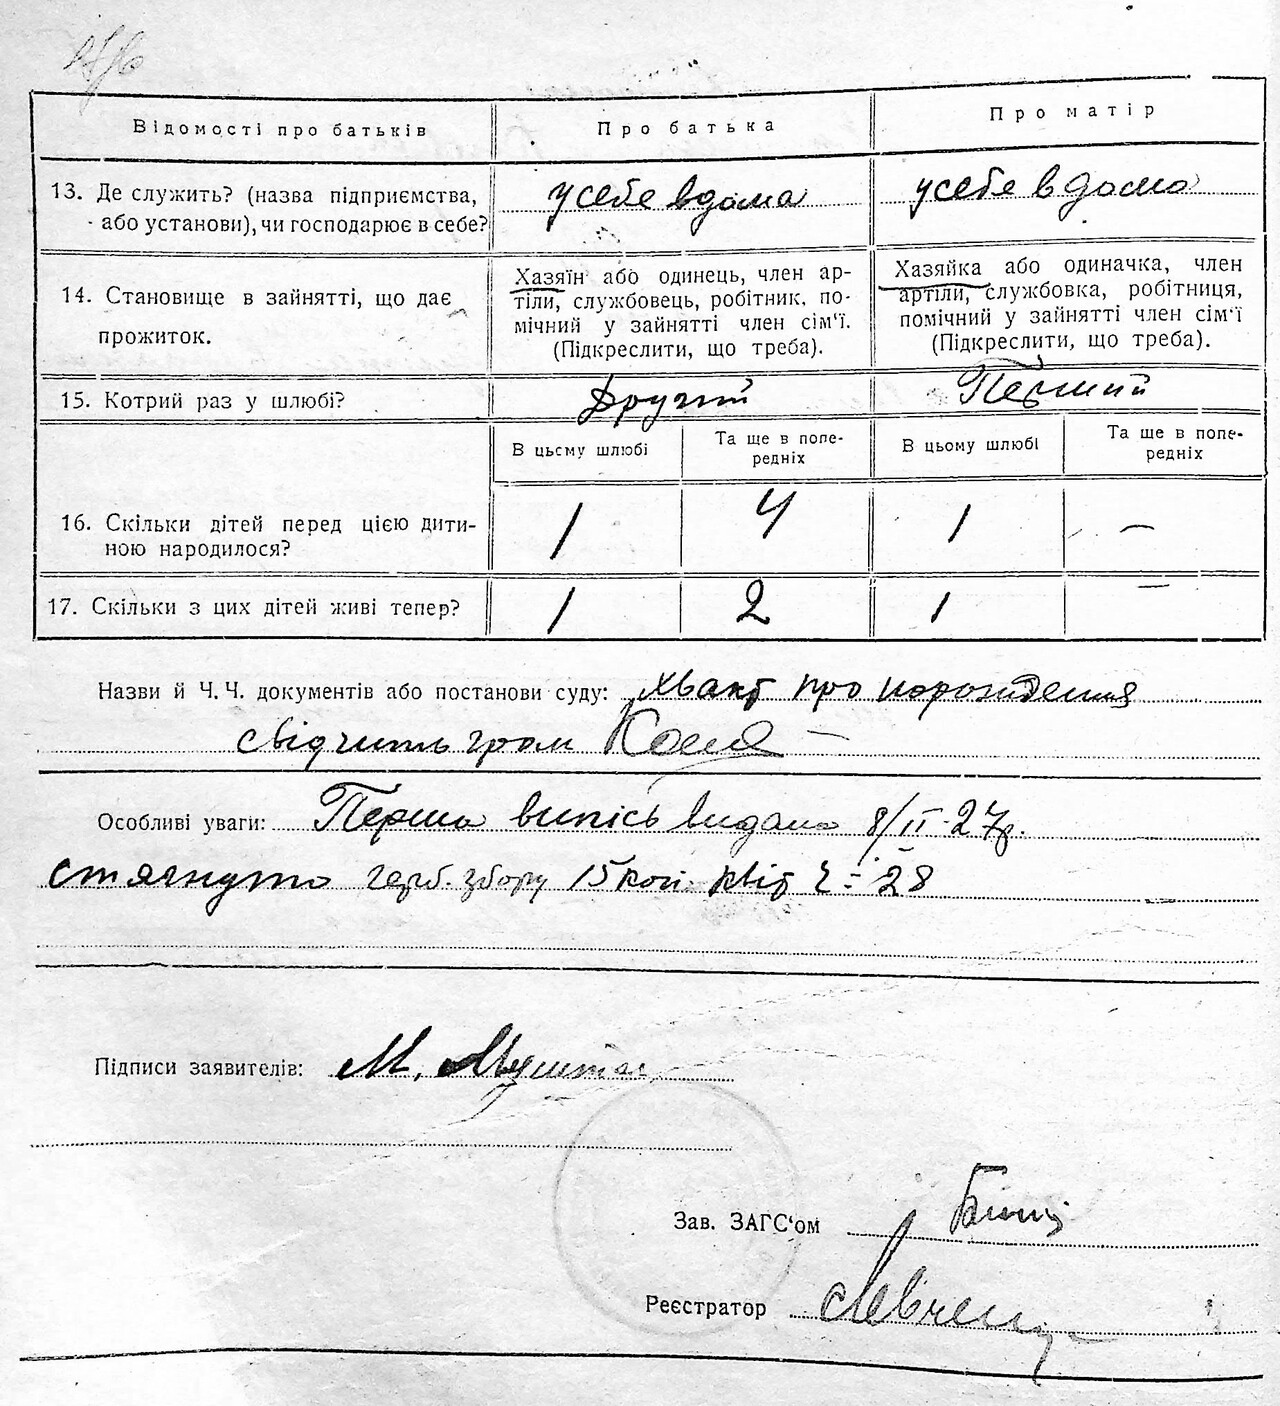 Відомості про батьків Про батька Про матір
13. Де служить? (назва підприємства, або установи), чи господарює в себе? у себе вдома у себе вдома
14. Становище в зайнятті, що дає прожиток.
Хазяїн або одинець, член ар-
тіли, службовець, робітник, по-
мічний у зайнятті член сім'ї.
(Підкреслити, що треба).
Хазяйка або одиначка, член
артіли, службовка, робітниця,
помічний у зайнятті член сім'ї
(Підкреслити, що треба).
15. Котрий раз у шлюбі? Другий Перший
В цьому шлюбі Та ще в попе-редніх В цьому шлюбі Та ще в попе-редніх
16. Скільки дітей перед цією дити-
ною народилося? 1 4 1 —
17. Скільки з цих дітей живі тепер? 1 2 1 —
Назви й Ч. Ч. документів або постанови суду: хвакт про народження
свідчить гром
Особливі уваги: Перша випісь видана 8/II-27р.
стягнуто герб. збору 15 коп. квіт ч 28
Підписи заявителів: М.
Зав. ЗАГС'ом
Реєстратор